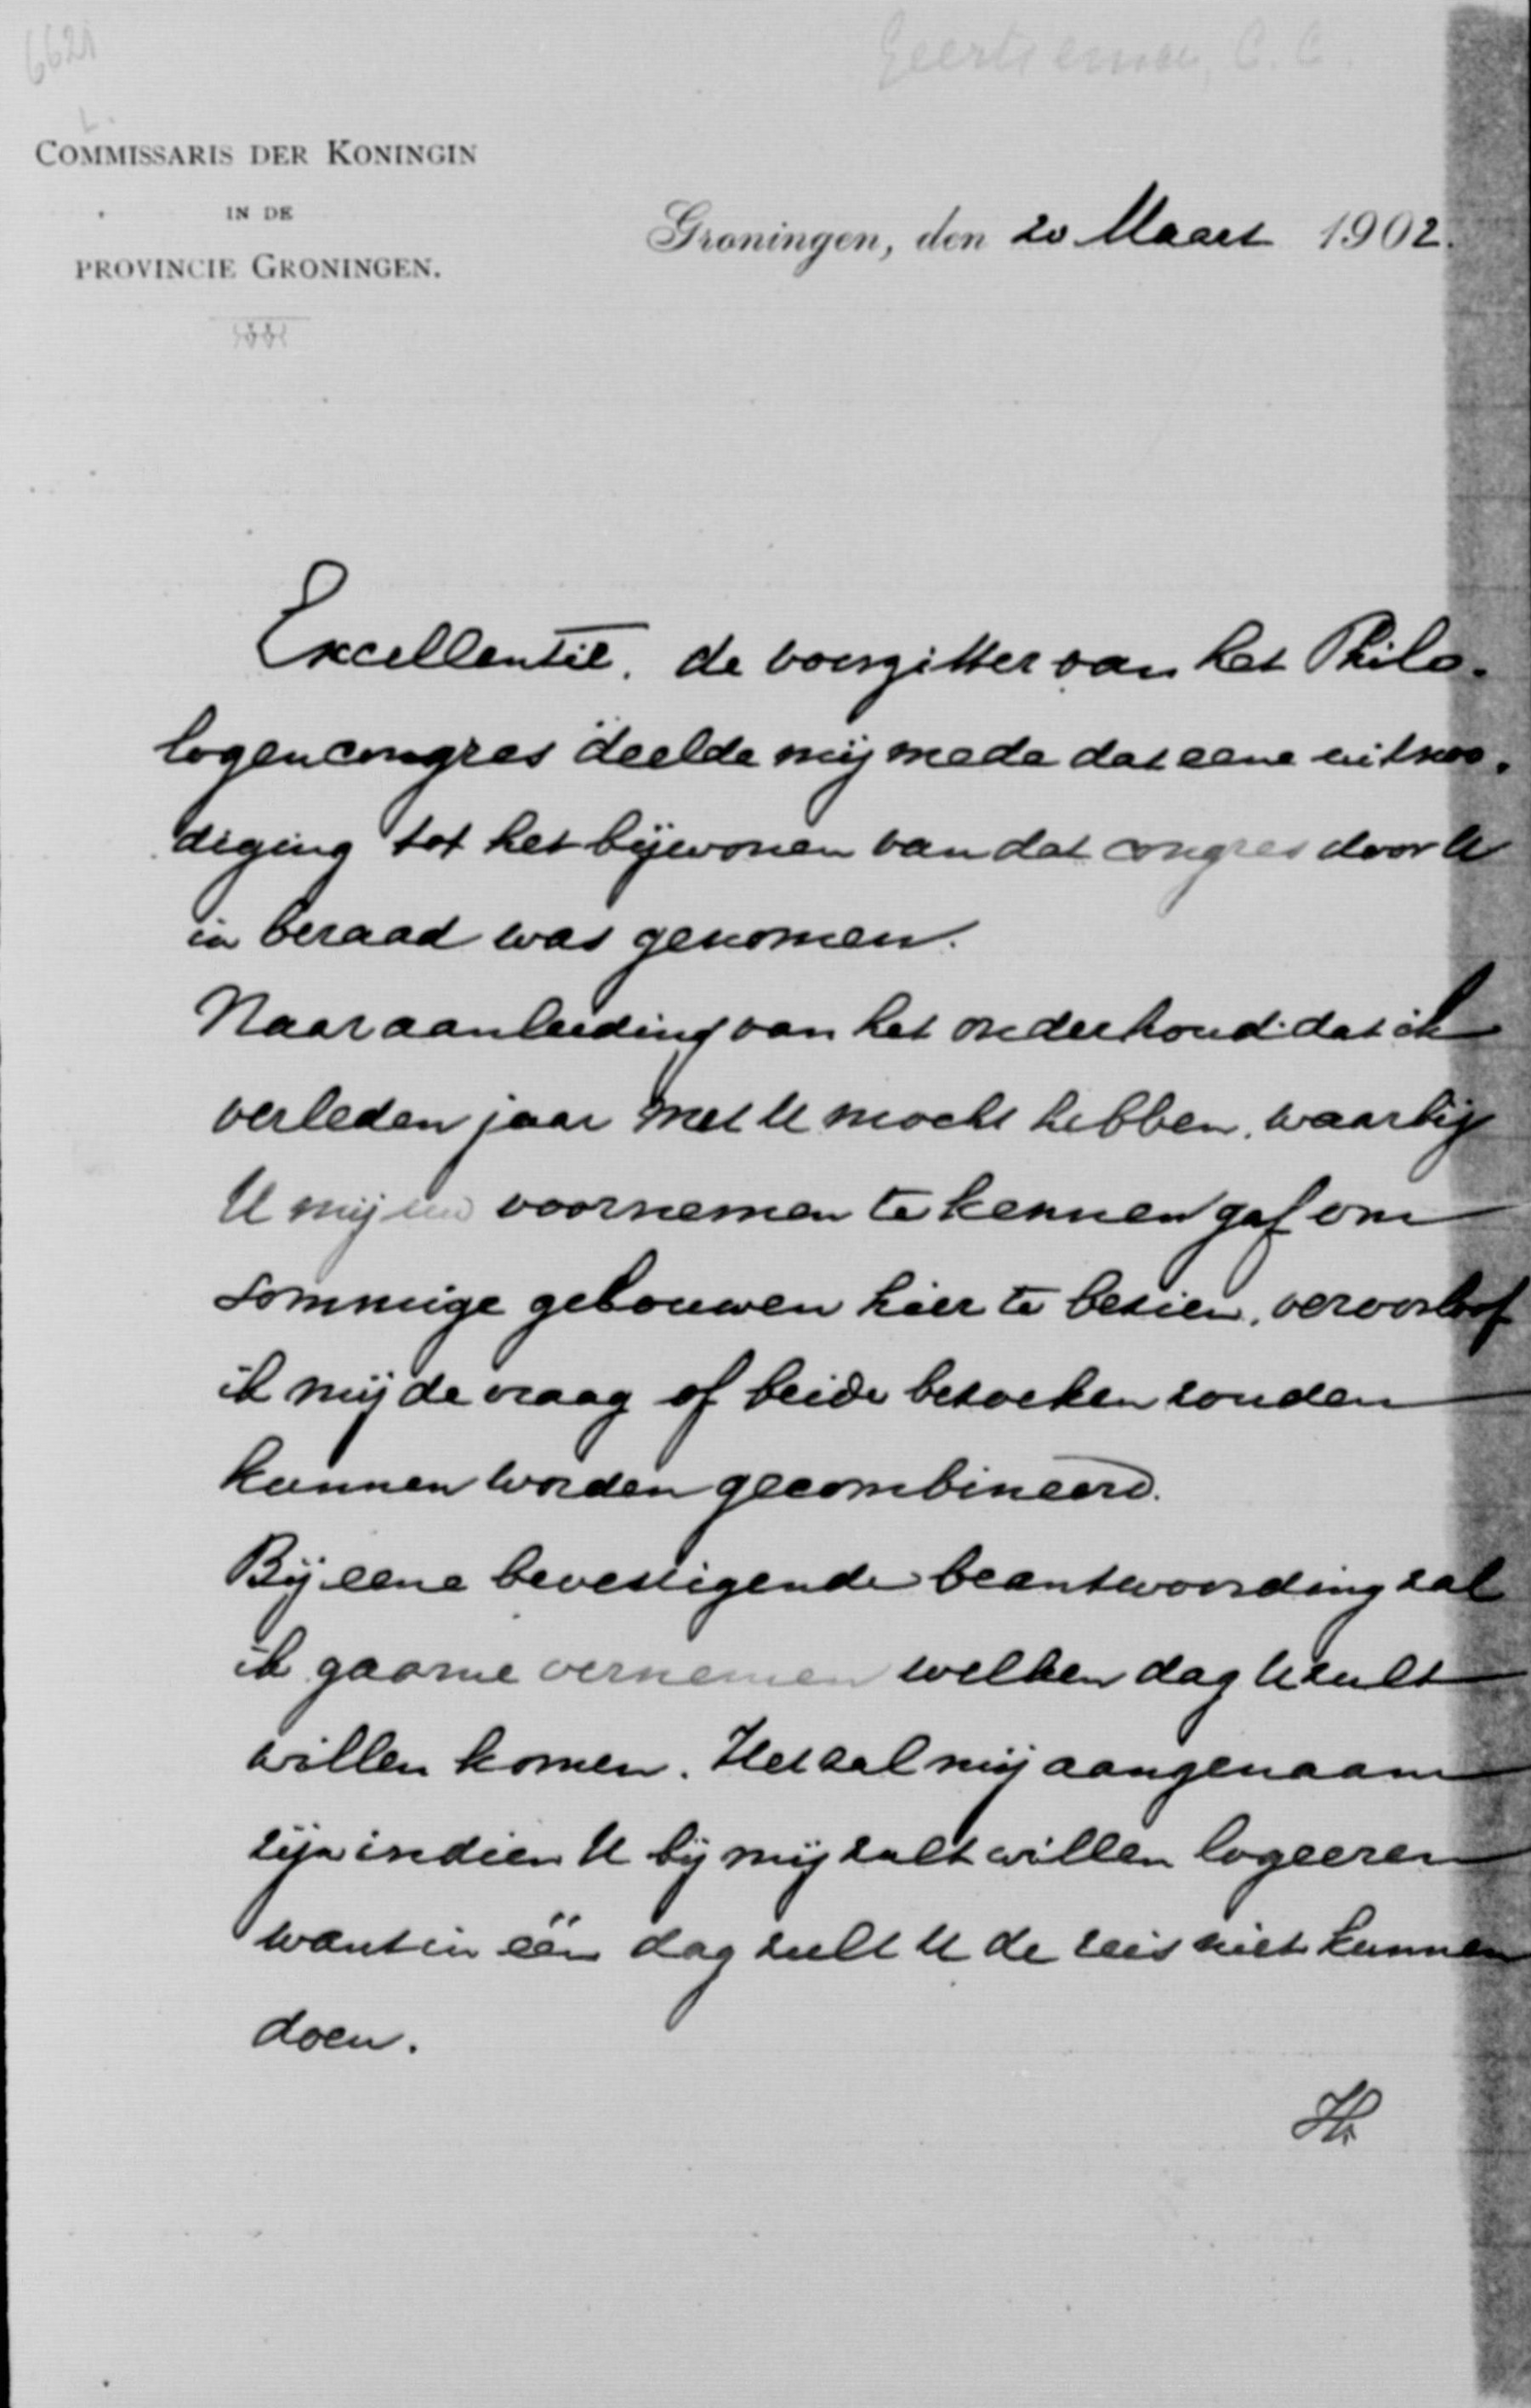 6621
Geertsema, C. C.
L.
COMMISSARIS DER KONINGIN
IN DE
PROVINCIE GRONINGEN.
Groningen, den 20 Maart 1902.
Excellentie, de voorzitter van het Philo-
logencongres deelde mij mede dat eene uitnoo-
diging tot het bijwonen van dat congres door U
in beraad was genomen.
Naar aanleiding van het onderhoud dat ik
verleden jaar met U mocht hebben, waarbij
U mij uw voornemen te kennen gaf om
sommige gebouwen hier te bezien, veroorloof
ik mij de vraag of beide bezoeken zouden
kunnen worden gecombineerd.
Bij eene bevestigende beantwoording zal
ik gaarne vernemen welken dag U zult
willen komen. Het zal mij aangenaam
zijn indien U bij mij zult willen logeeren
want in één dag zult U de reis niet kunnen
doen.